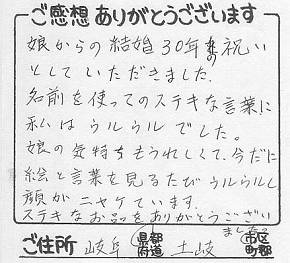 ご感想ありがとうございます
娘からの結婚30年の祝い
としていただきました。
名前を使ってのステキな言葉に
私はウルウルでした。
娘の気持ちもうれしくて、今だに
絵と言葉を見るたびウルウルし
顔がニヤケています。
ステキなお品をありがとうござい
ました
ご住所 岐阜 都道府県 土岐 市区町郡